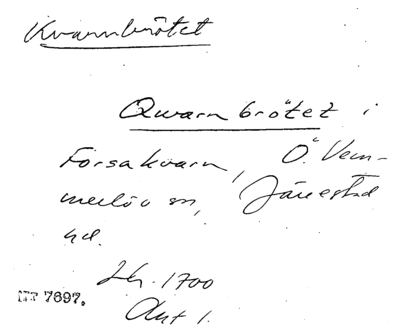 Kvarnbrötet
Qwarnbrötet i
Forsakvarn, Ö. Vem-
merlöv sn, Järrestad
hd.
Jb. 1700
Ant 1.
MT 7697.